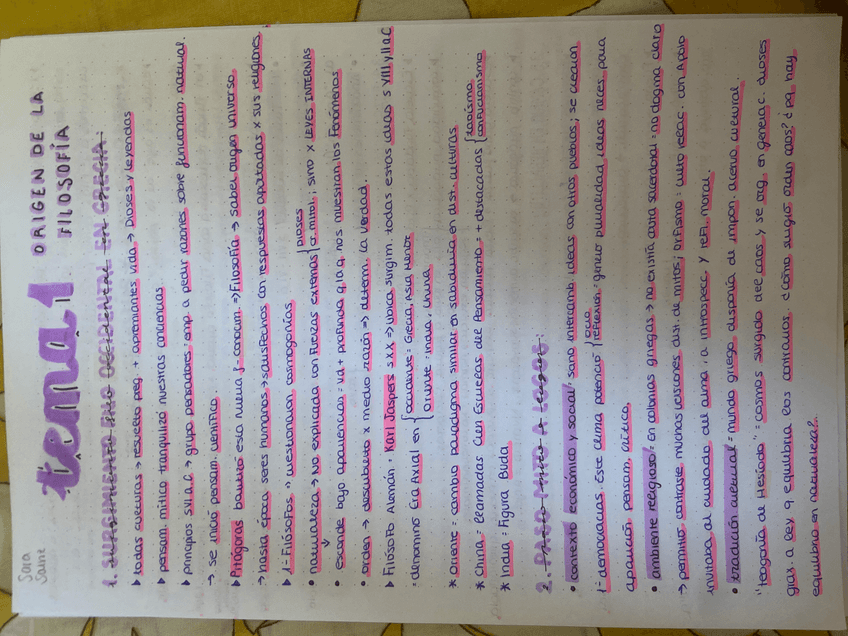 Sara
Saine
tema 1 ORIGEN DE LA
FILOSOFÍA
1. SURGIMIENTO OCCIDENTAL EN GRECIA:
▸ todas culturas → resuelto preg. + apremiantes vida → Dioses y leyendas
▸ pensam. mítico tranquilizó nuestras conciencias
▸ principios s VI a.C → grupo pensadores; emp. a pedir razones sobre funcionam. natural.
→ se inició pensam. científico.
▸ Pitágoras bautizó esta nueva f- conocim ⇒ Filosofía → saber origen universo
→ hasta época seres humanos → satisfechos con respuestas aportadas x sus religiones
▸ 1- Filósofos → cuestionaron cosmogonías
• naturaleza → No explicada con fuerzas externas { Dioses o mitol; sino x LEYES INTERNAS
• esconde bajo apariencias: vd + profunda q la q nos muestran los Fenómenos
• orden → descubierto x medio razón ⇒ determ. la verdad.
▸ Filósofo Alemán, Karl Jaspers s XX ⇒ ubica surgim. todas estas ideas s VIII y II a.C
= denominó Era Axial en { occidente: Grecia, Asia Menor
oriente: India, China
* Oriente = cambio paradigma similar en sabiduría en dist. culturas
* China = llamadas Cien Escuelas del Pensamiento = + destacadas { taoísmo
confucionismo
* India = Figura Buda
2. PASO MITO A LOGOS:
• contexto económico y social: solían intercamb. ideas con otros pueblos; se crearon
1- democracias. Este clima potenció { ocio
reflexión = generó pluralidad ideas neces. para
aparición pensam. crítico.
• ambiente religioso: en colonias griegas → no existía casta sacerdotal = no dogma claro
→ permitió contraste muchas versiones dist. de mitos; orfismo = culto relac. con Apolo
invitaba al cuidado del alma, a introspecc. y refl. moral.
• tradición cultural = mundo griego disponía de impon. acervo cultural.
"Teogonía de Hesíodo" = cosmos surgido del caos y se org. en general. dioses
grax. a ley q equilibria los contrarios. ¿cómo surgió orden caos? ¿pq hay
equilibrio en naturaleza?